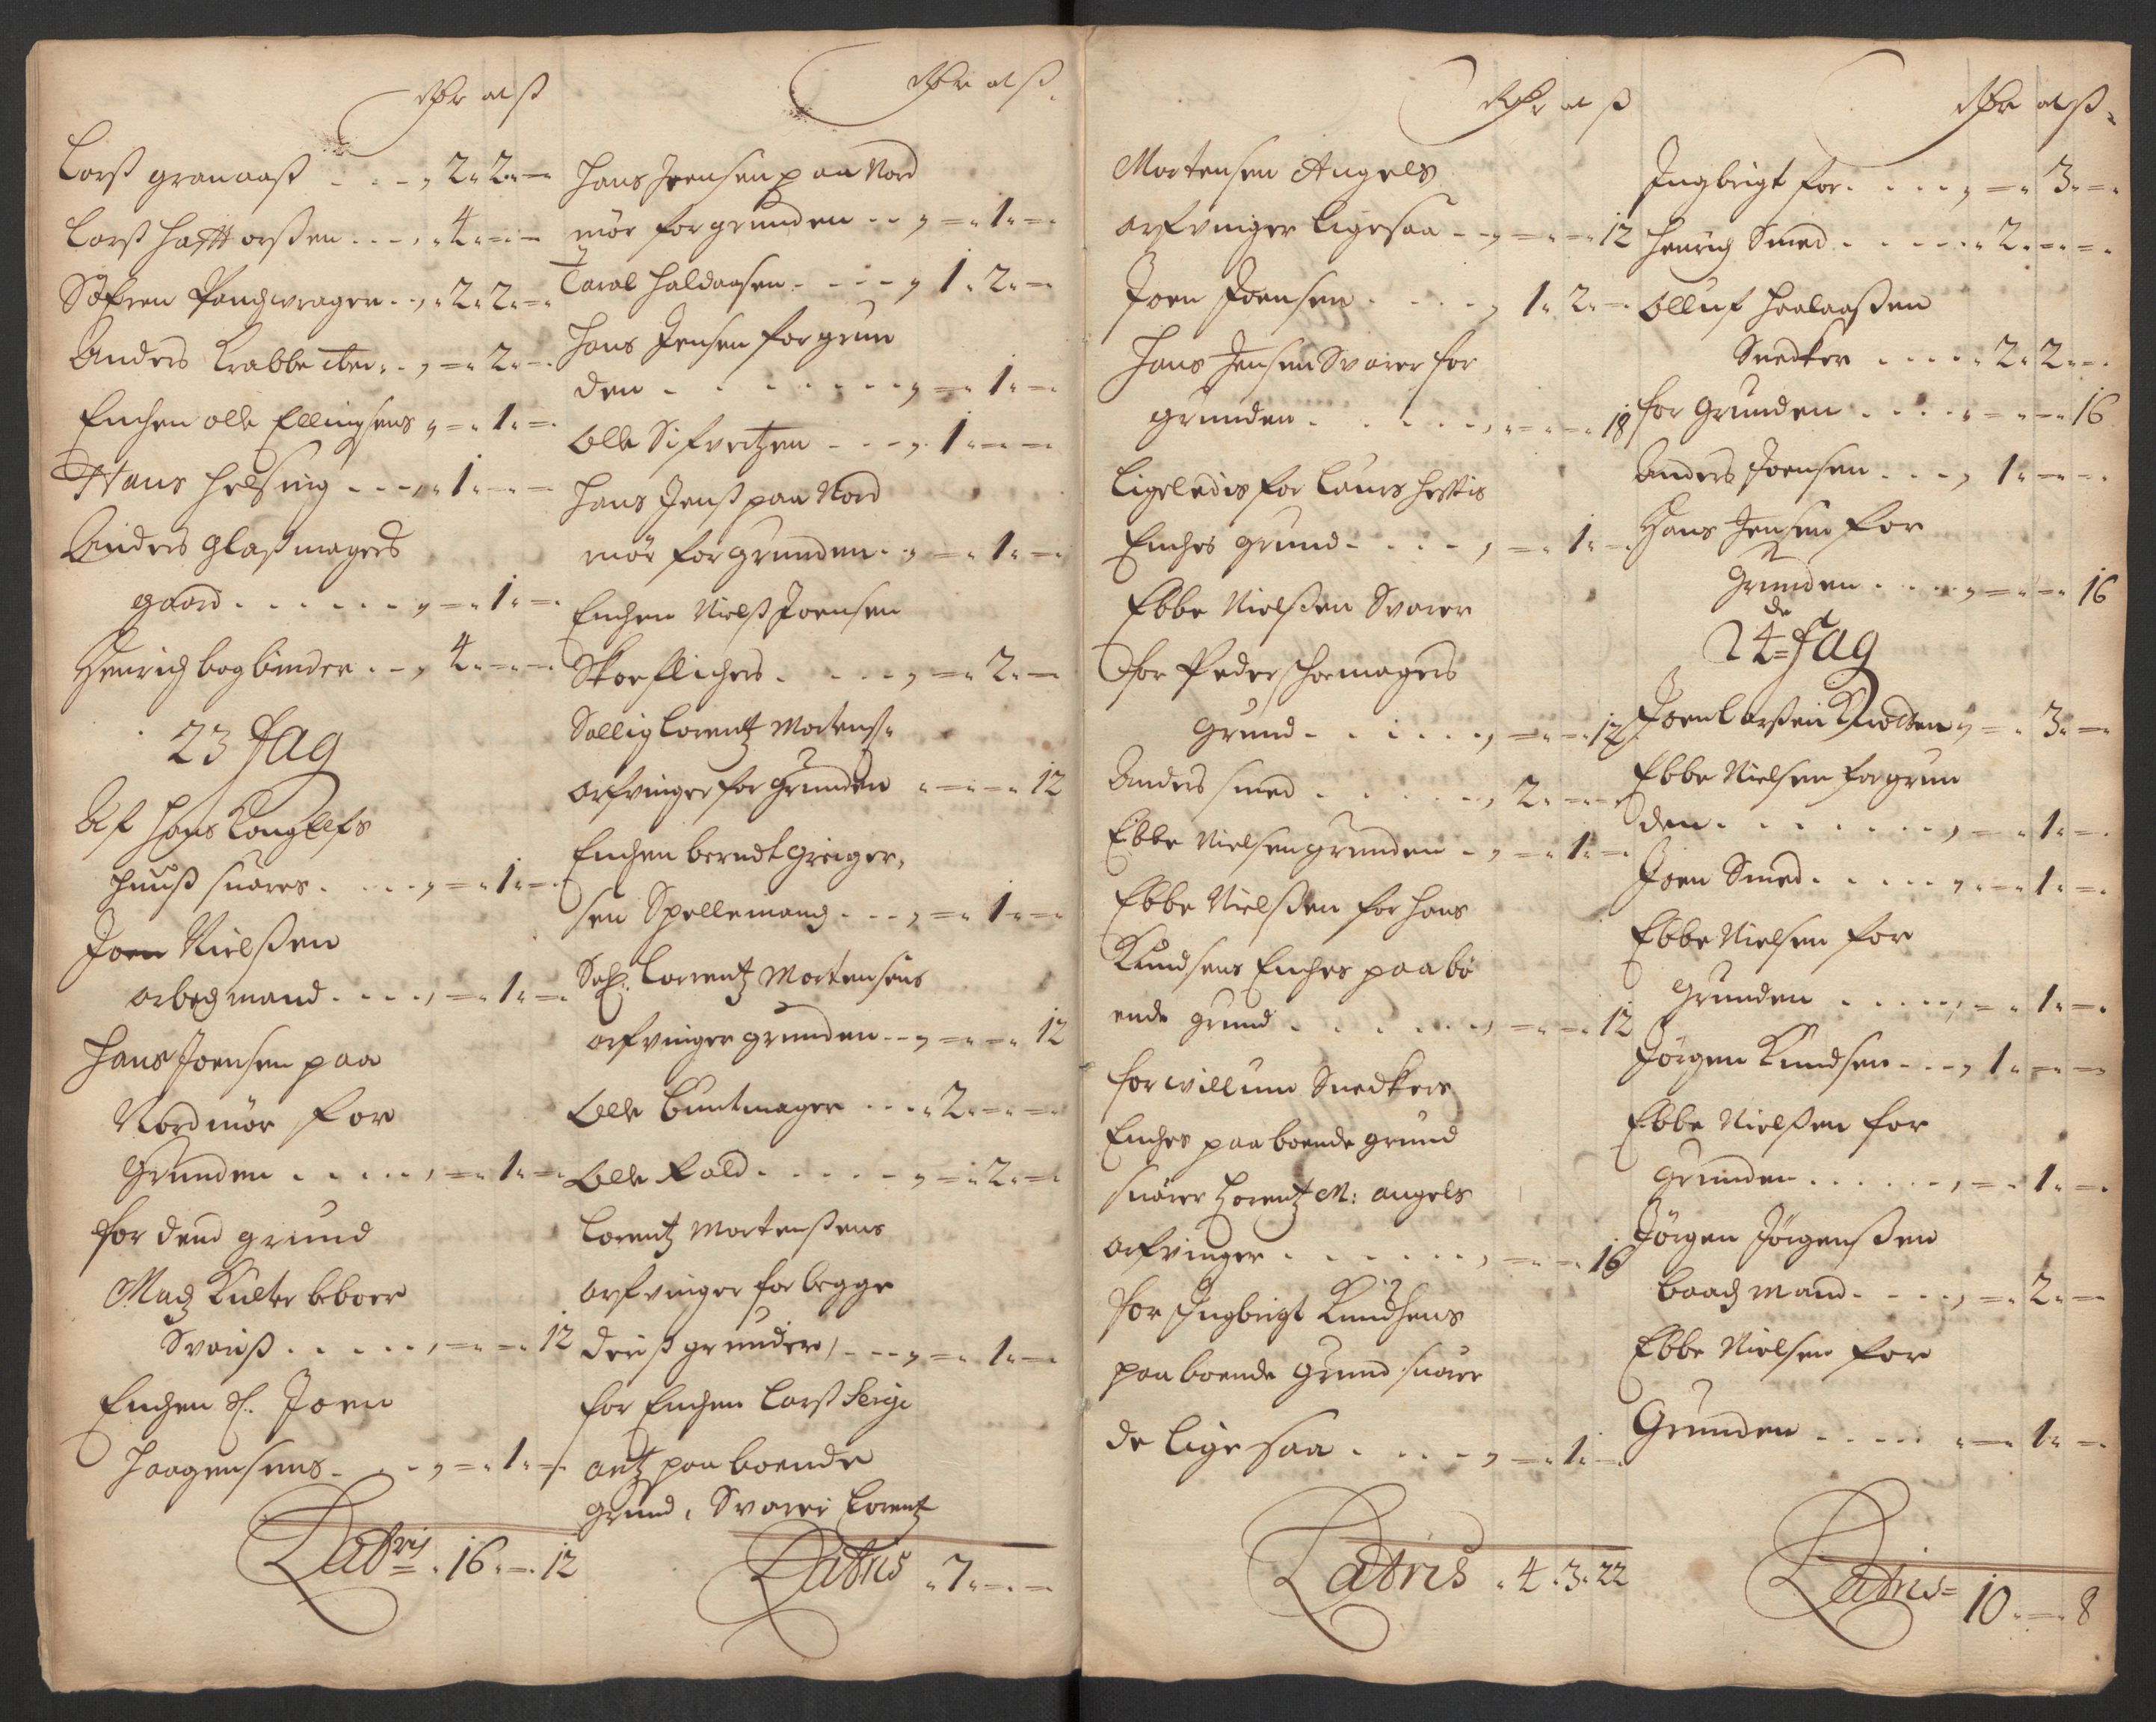 Rdr ort ß
Larß granaaß . . . , 2 „ 2 „ =
Larß hafttorßen . . . , „ 4 „ = „ =
Søfren Pandzvrager . . , „ 2 „ 2 „ =
Anders Krabbe . . , = „ 2 „ =
Enchen olle Ellingsens , = „ 1 „ =
Hans helsing . . . , „ 1 „ = „ =
Anders glaßmagers
gaard . . . . . . , = „ 1 „ =
Henrich bogbinder . . , 4 „ = „ =
23 fag
Af Hans
huuß suares . . . . , = „ 1 „ =
Joen Nielßen
arbedzmand . . . . , = „ 1 „ =
Hans Joensen paa
Nordmør for
Grunden . . . . . , = „ 1 „ =
for dend grund
Madz Kulter beboer
Svariß . . . . . , = „ = „ 12
Enchen Sl. Joen
Haagensens . . . , = „ 1 „ =
Latris „ 16 „ = „ 12
Rdr ort ß
Hans Joensen paa Nord
mør for grunden . . , = „ 1 „ =
Tarol Haldorsen . . . . , 1 „ 2 „ =
Hans Jensen for grun
den . . . . . . . . , = „ 1 „ =
Olle Sifvertzen . . . , 1 „ = „ =
Hans Jenß paa Nord
mør for grunden . . , = „ 1 „ =
Enchen Nielß Joensen
Skoeflichers . . . . , = „ 2 „ =
Sallig Lorentz Mortenß
arfvinger for grunden „ = „ = „ 12
Enchen berndt greiger,
sen Spellemand . . . , = „ 1 „ =
Sal: Lorrentz Mortensens
arfvinger grunden . . , = „ = „ 12
Olle Buntmager . . . „ 2 „ = „ =
Olle Fold . . . . . , = „ 2 „ =
Lorentz Mortenßens
arfvinger for begge
deriß grunder, . . . , = „ 1 „ =
for Enchen Larß Serigi
antz paa boende
grund, Svarer Lorentz
Latris „ 7 „ = „ =
Rdr ort ß
Mortensen Angels
arfvinger ligesaa . . , = „ = „ 12
Joen Joensen . . . . , 1 „ 2 „ =
Hans Jensen Svarer for
grunden . . . . . , „ = „ = 18
ligeledis for Laurs
Enches grund . . . . , = „ 1 „ =
Ebbe Nielßen Svarer
for Peder schomagers
Grund . . . . . . , = „ = „ 12
Anders smed . . . . . , 2 „ = „ =
Ebbe Nielsen grunden . , = „ 1 „ =
Ebbe Nielßen for Hans
Knudsens Enches paa bo
ende grund . . . . . , = „ = „ 12
for willum Snedkers
Enches paa boende grund
suarer Lorentz M: angels
arfvinger . . . . . . , = „ = „ 16
for Ingbrigt Knudsens
paa boende Grund suarer
de lige saa . . . . , = „ 1 „ =
Latris „ 4 „ 3 „ 22
Rdr ort ß
Ingbrigt for . . . . , = „ 3 „ =
Henrich Smed . . . . . „ 2 „ = „ =
Olluf
Snedker . . . . . „ 2 „ 2 „ =
for Grunden . . . . „ = „ = „ 16
Anders Joensen . . . , 1 „ = „ =
Hans Jensen for
Grunden . . . . , = „ = „ 16
24de fag
Joen Larßen , = „ 3 „ =
Ebbe Nielsen for grun
den . . . . . . . . , = „ 1 „ =
Joen Smed . . . . . , „ = „ 1 „ =
Ebbe Nielsen for
Grunden . . . . . , = „ 1 „ =
Jørgen Knudsen . . . , 1 „ = „ =
Ebbe Nielßen for
Grunden . . . . . . , = „ 1 „ =
Jørgen Jørgenßen
baadzmand . . . . , = „ 2 „ =
Ebbe Nielsen for
Grunden . . . . „ = „ 1 „ =
Latris = 10 „ = „ 8